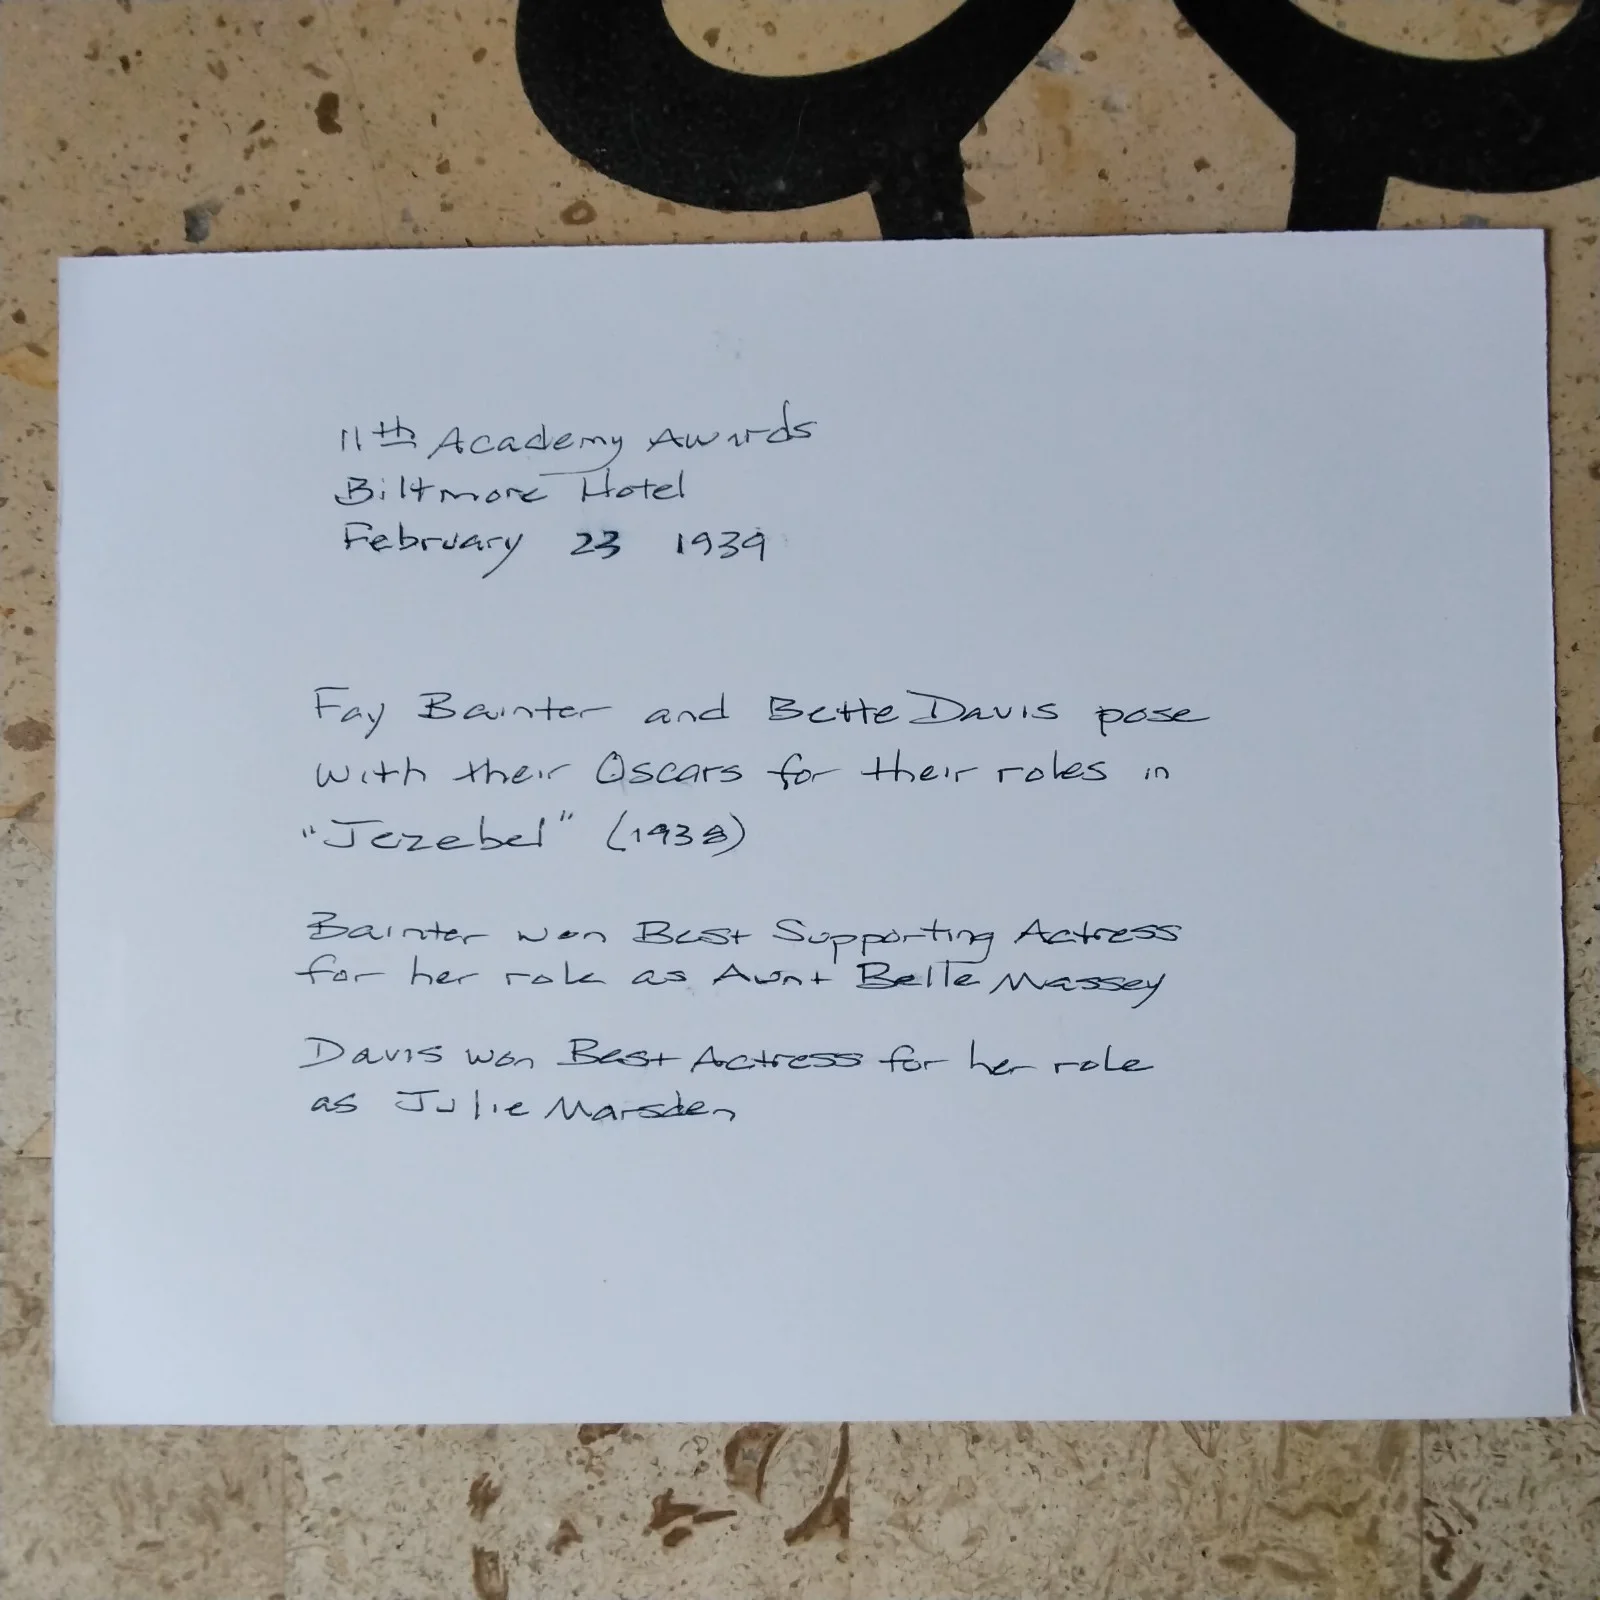 11th Academy Awards
Biltmore Hotel
February 23 1939
Fay Bainter and Bette Davis pose
with their Oscars for their roles in
"Jezebel" (1938)
Bainter won Best Supporting Actress
for her role as Aunt Belle Massey
Davis won Best Actress for her role
as Julie Marsden